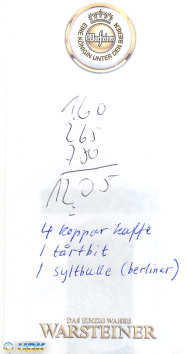 EINE KÖNIGIN UNTER DEN BIEREN
Warsteiner
160
265
780
1205
4 koppar kaffe
1 tårtbit
1 syltbulle (berliner)
DAS EINZIG WAHRE
WARSTEINER